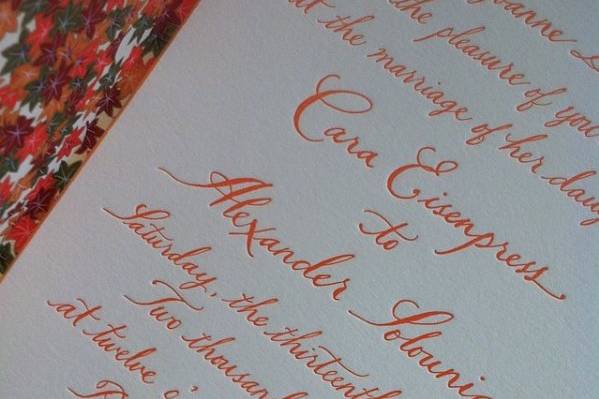 the pleasure of you
at the marriage of her daug
Cara Eisenpress
to
Alexander Solouni
Saturday, the thirteenth
Two thousan
at twelve o'